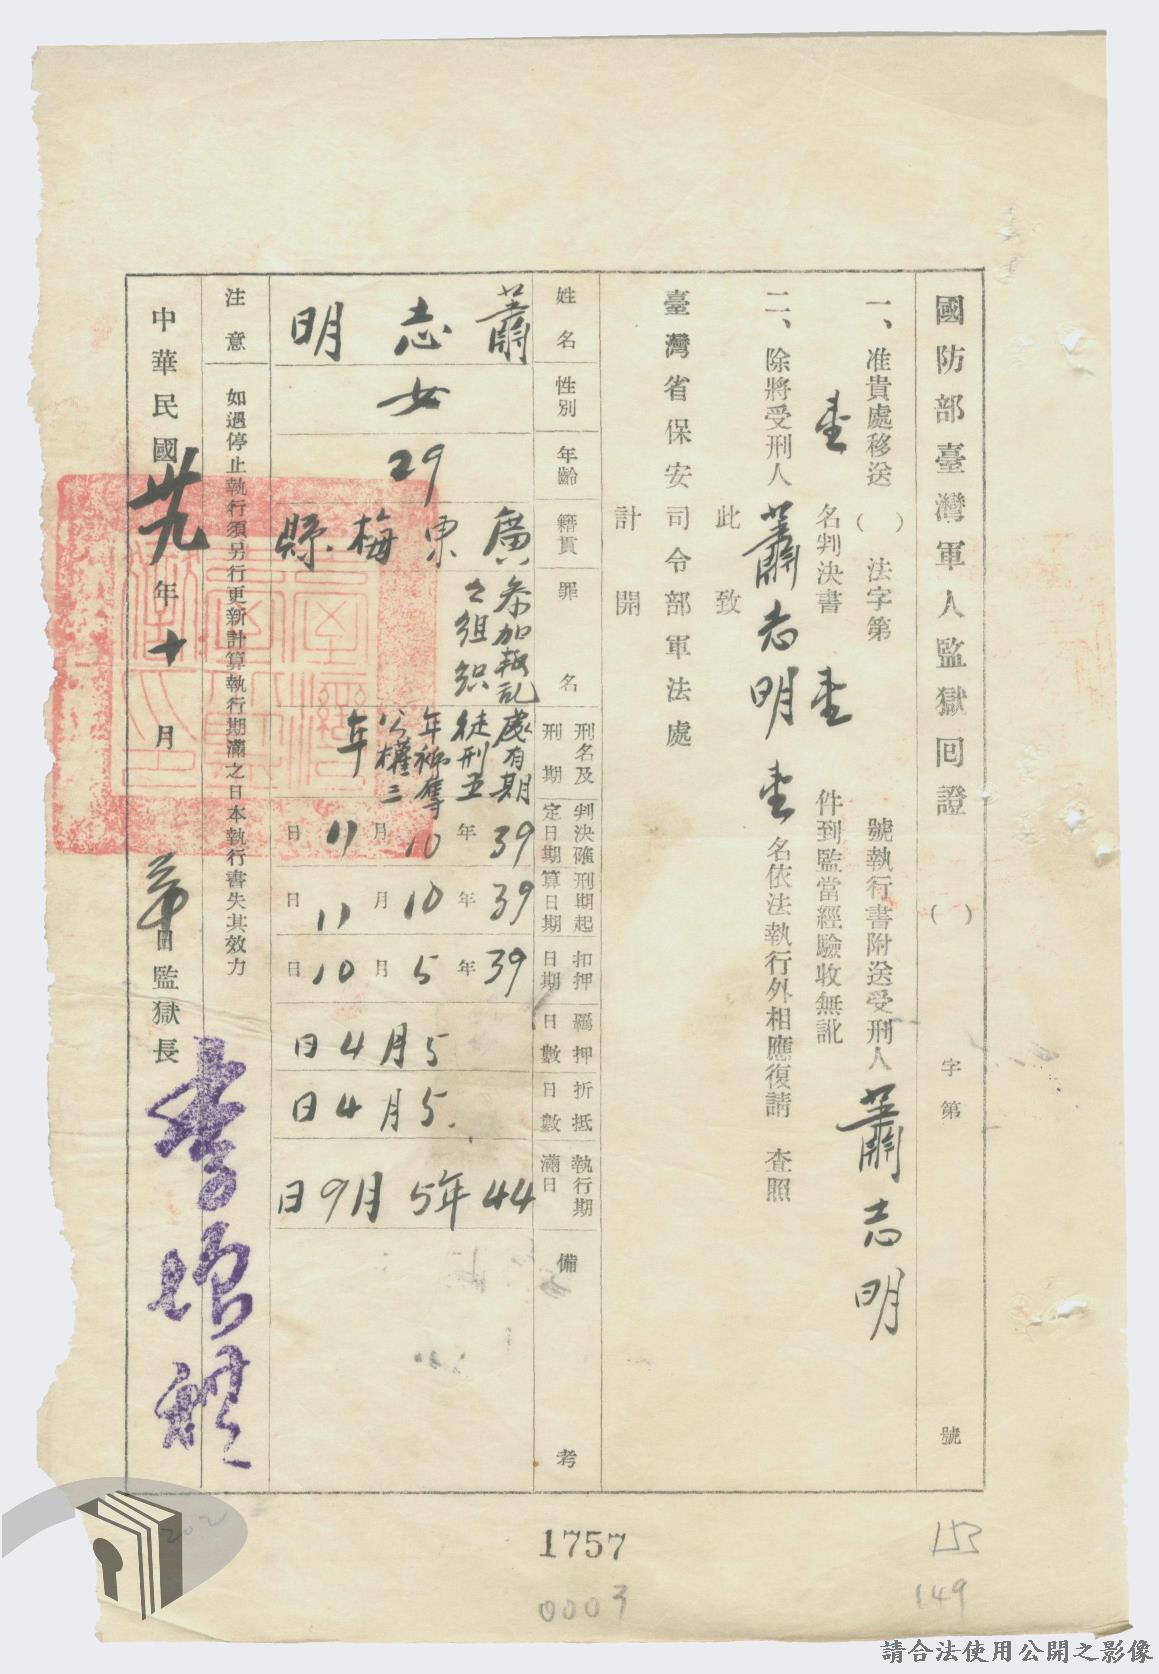 國防部臺灣軍人監獄回證 ( ) 字第 號
一、准貴處移送 ( ) 法字第 號執行書附送受刑人蕭志明
壹名判決書壹件到監當經驗收無訛
二、除將受刑人蕭志明壹名依法執行外相應復請 查照
此致
臺灣省保安司令部軍法處
計開
姓名 蕭志明
性別 女
年齡 29
籍貫 廣東梅縣
罪名 參加叛乱之組织
刑名及刑期 處有期徒刑五年褫奪公權三年
判決確定日期 39年10月11日
刑期起算日期 39年10月11日
扣押日期 39年5月10日
羈押日數 5月4日
折抵日數 5月4日
執行期滿日 44年5月9日
備考
注意 如遇停止執行須另行更新計算執行期滿之日本執行書失其效力
中華民國卅九年十月 日監獄長
1757
0003
153
149
202
請合法使用公開之影像